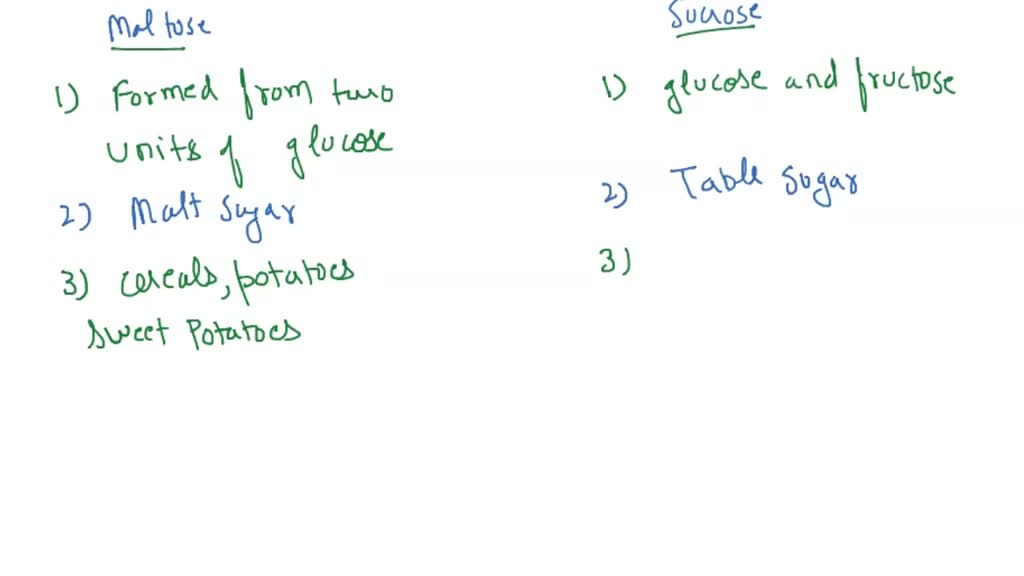 Maltose
1) Formed from two
units of glucose
2) Malt Sugar
3) cereals, potatoes
sweet Potatoes
Sucrose
1) glucose and fructose
2) Table Sugar
3)